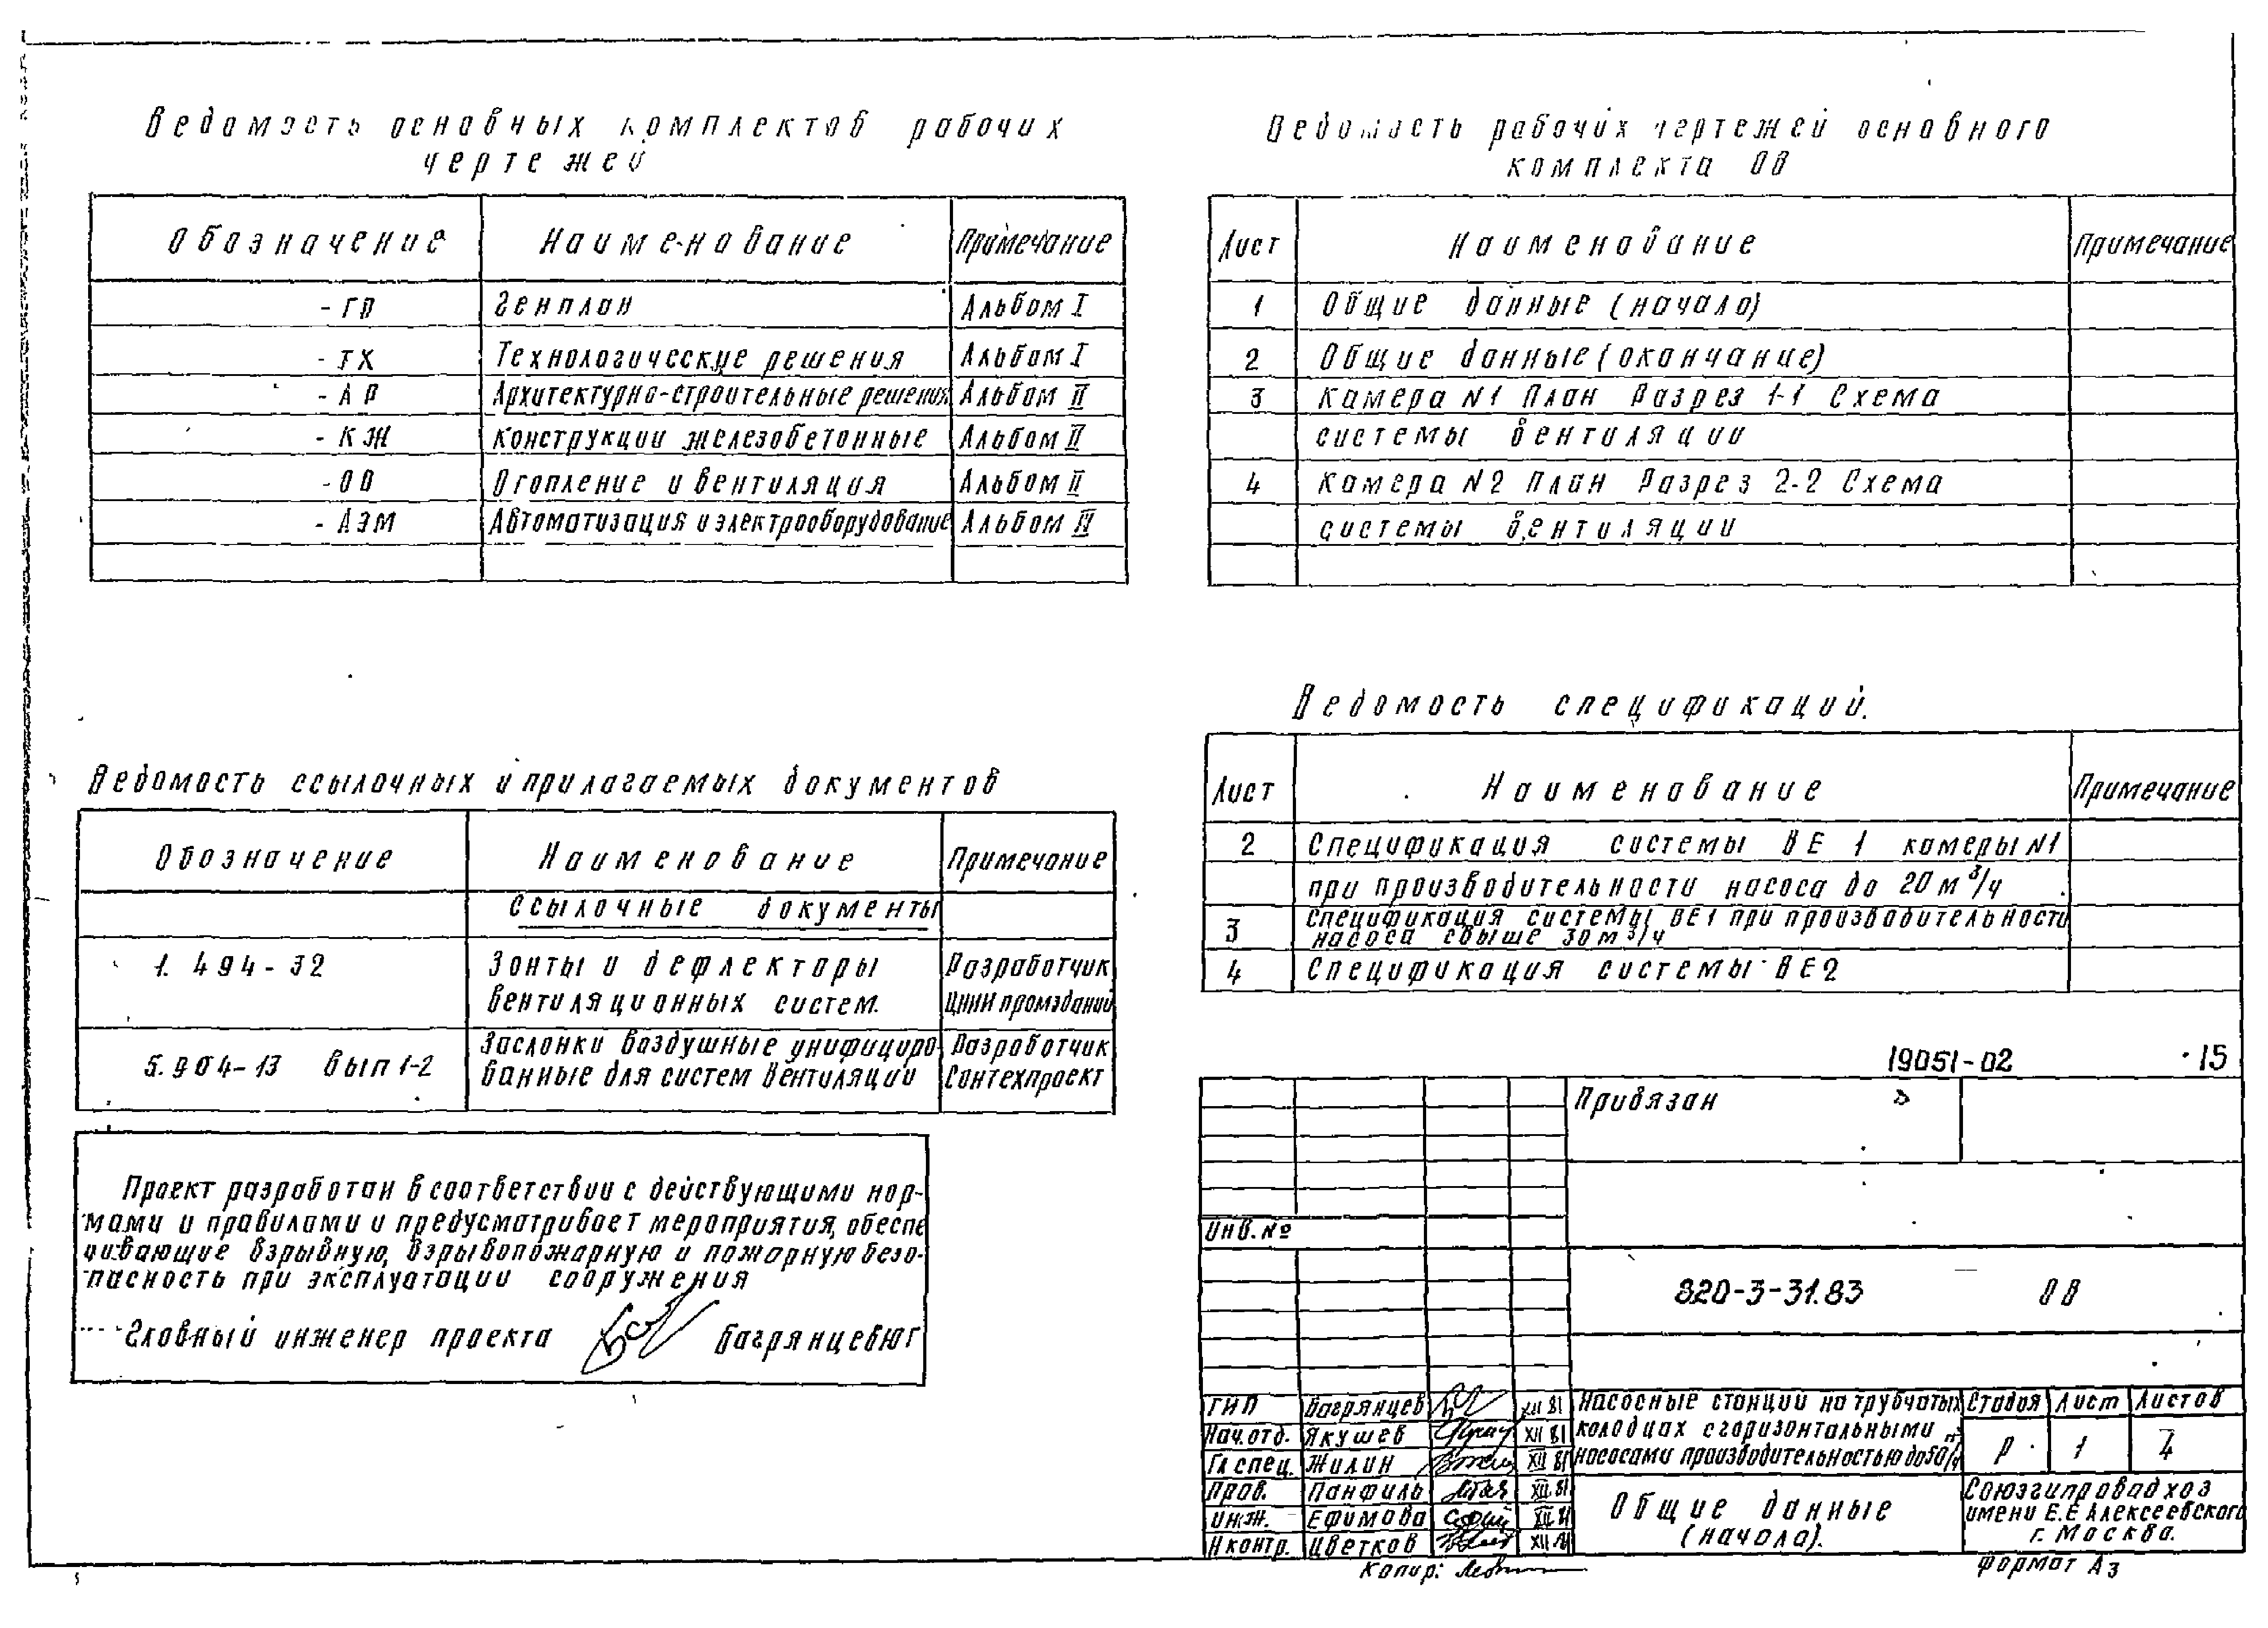 Ведомость основных комплектов рабочих
чертежей
Обозначение Наименование Примечание
-ГП Генплан Альбом I
-ТХ Технологические решения Альбом I
-АР Архитектурно-строительные решения Альбом II
-КЖ Конструкции железобетонные Альбом II
-ОВ Отопление и вентиляция Альбом II
-АЭМ Автоматизация и электрооборудование Альбом
Ведомость рабочих чертежей основного
комплекта ОВ
Лист Наименование Примечание
1 Общие данные (начало)
2 Общие данные (окончание)
3 Камера N1 План Разрез 1-1 Схема
системы вентиляции
4 Камера N2 План Разрез 2-2 Схема
системы вентиляции
Ведомость ссылочных и прилагаемых документов
Обозначение Наименование Примечание
Ссылочные документы
1.494-32 Зонты и дефлекторы Разработчик
вентиляционных систем. ЦНИИ промзданий
5.904-13 вып 1-2 Заслонки воздушные унифициро- Разработчик
ванные для систем вентиляции Сантехпроект
Ведомость спецификаций.
Лист Наименование Примечание
2 Спецификация системы ВЕ 1 камеры N1
при производительности насоса до 20 м³/ч
3 Спецификация системы ВЕ1 при производительности
насоса свыше 30 м³/ч
4 Спецификация системы ВЕ2
Проект разработан в соответствии с действующими нор-
мами и правилами и предусматривает мероприятия, обеспе
чивающие взрывную, взрывопожарную и пожарную безо-
пасность при эксплуатации сооружения
Главный инженер проекта Багрянцев ЮГ
19051-02 15
Привязан
Инв.№
820-3-31.83 ОВ
ГИП Багрянцев XII 81
Нач.отд. Якушев XII 81
Гл спец. Жилин XII 81
Пров. Панфиль XII.81
Инж. Ефимова XII 81
Н контр. Цветков XII 81
Насосные станции на трубчатых
колодцах с горизонтальными
насосами производительностью до
Стадия Лист Листов
Р 1 4
Общие данные
(начало).
Союзгипроводхоз
имени Е.Е Алексеевского
г. Москва.
Копир:
Формат А3